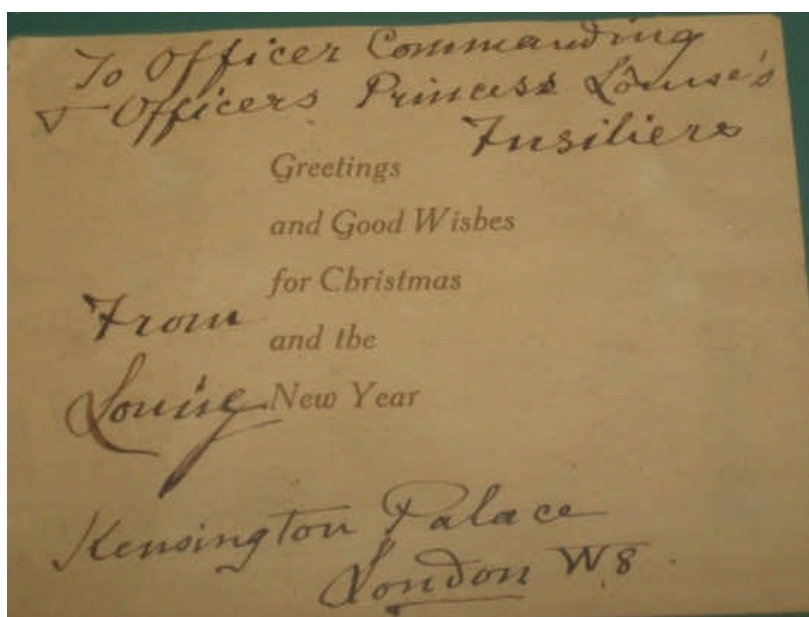 To Officer Commanding
& Officers Princess Louise's
Fusiliers
Greetings
and Good Wishes
for Christmas
From
and the
Louise
New Year
Kensington Palace
London W8.